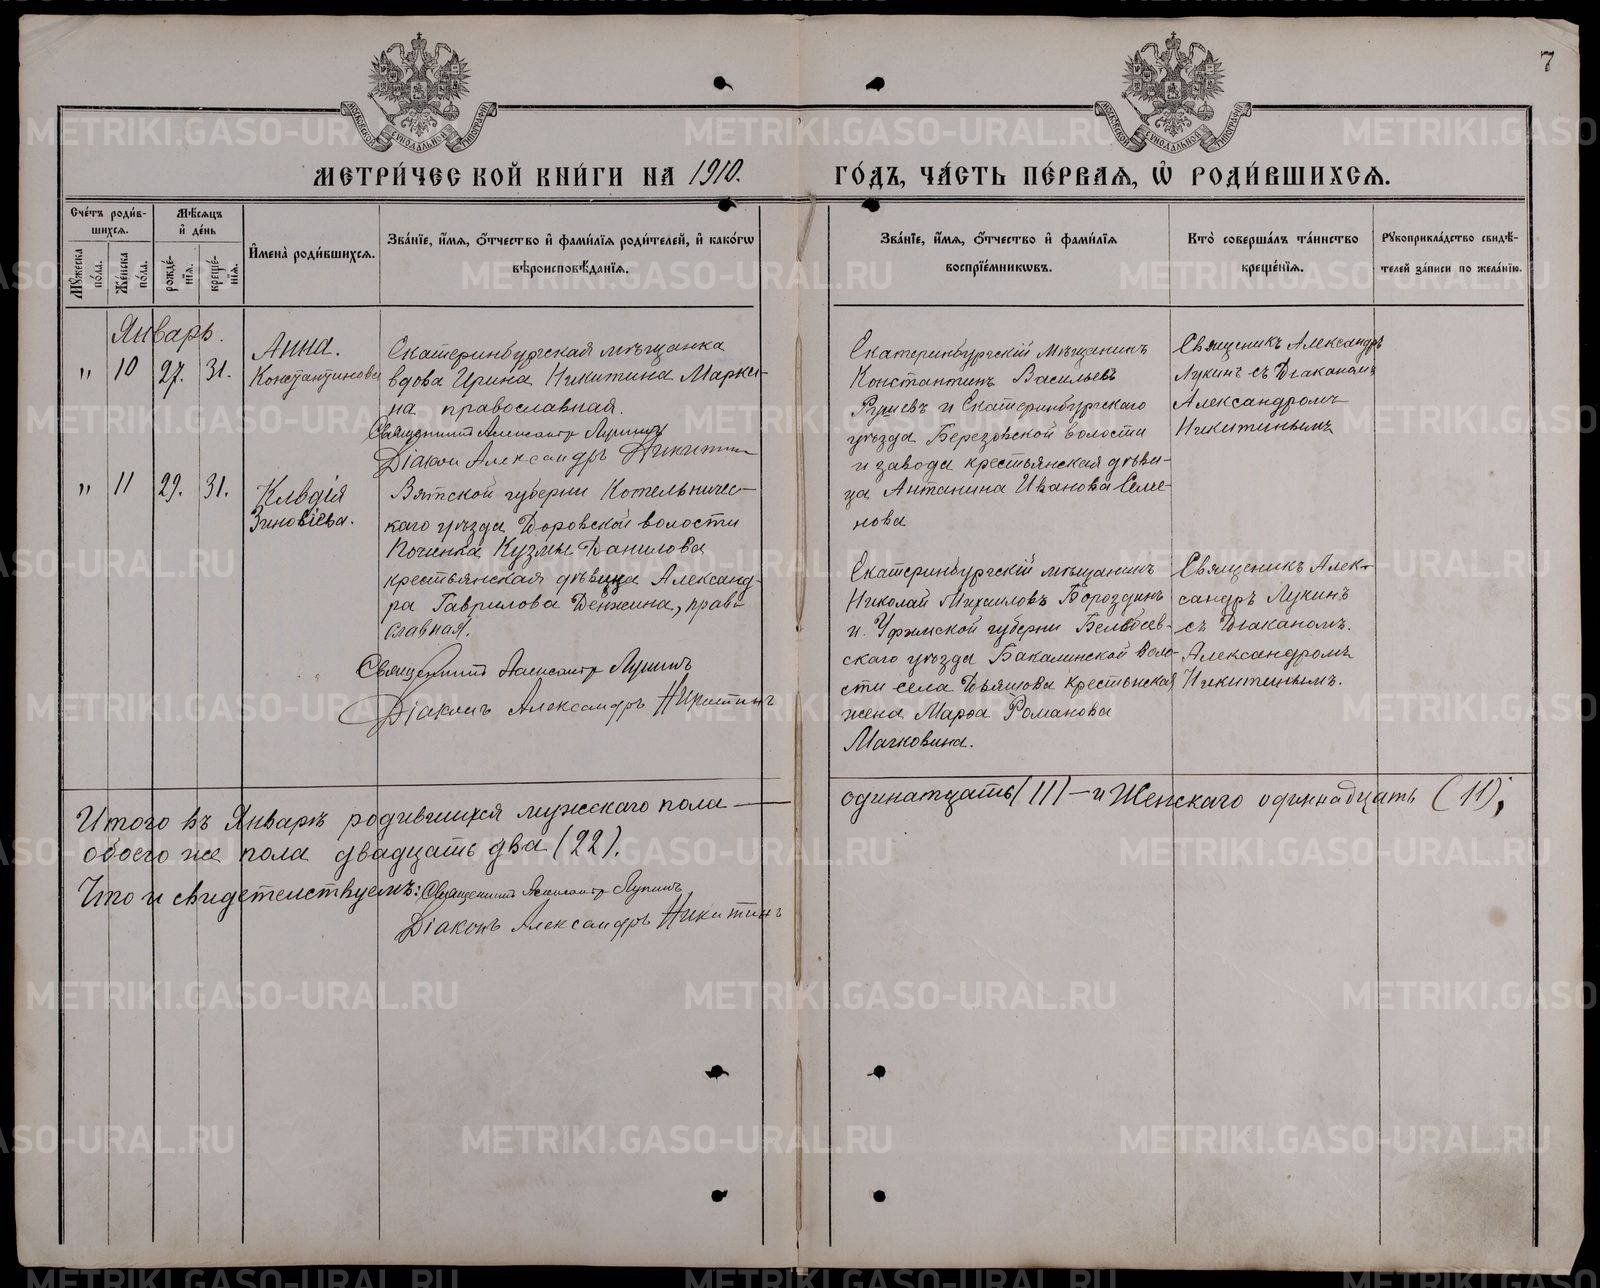 7
МЕТРИЧЕСКОЙ КНИГИ НА 1910. ГОДЪ, ЧАСТЬ ПЕРВАЯ, Ѡ РОДИВШИХСЯ.
Счетъ родив-
шихся.
Мужеска пола.
Женска пола.
Мѣсяцъ и день
рожде-
нія.
креще-
нія.
Имена родившихся.
Званіе, имя, отчество и фамилія родителей, и какогѡ
вѣроисповѣданія.
Званіе, имя, отчество и фамилія
воспріемниковъ.
Кто совершалъ таинство
крещенія.
Рукоприкладство свидѣ-
телей записи по желанію.
Январь.
" 10 27. 31.
Анна.
Константинова
Екатеринбургская мѣщанка
вдова Ирина Никитина Марки-
на православная.
Священникъ Александръ Лукинъ
Діаконъ Александръ Никитинъ
Екатеринбургскій мѣщанинъ
Константинъ Васильевъ
Рушевъ и Екатеринбургскаго
уѣзда Березовской волости
и завода крестьянская дѣви-
ца Антанина Иванова Семе-
нова
Священникъ Александръ
Лукинъ съ Діаканомъ
Александромъ
Никитинымъ
" 11 29. 31.
Клвдія
Зиновіева.
Вятской губерни Котельничес-
каго уѣзда Даровской волости
Починка Кузмы Данилова
крестьянская дѣвица Александ-
ра Гаврилова Денжина, право-
славная.
Священникъ Александръ Лукинъ
Діаконъ Александръ Никитинъ
Екатеринбургскій мѣщанинъ
Николай Михаиловъ Бороздинъ
и Уфимской губерни Белебеев-
скаго уѣзда Бакалинской воло-
сти села Дьяшова крестьнская
жена Марѳа Романова
Мачковина.
Священникъ Алек-
сандръ Лукинъ
съ Діаканомъ.
Александромъ
Никитинымъ.
Итого въ Январѣ родившихся мужескаго пола — одинатцать (11) — и Женскаго одиннадцать (11),
обоего же пола двадцать два (22).
Что и свидетелствуемъ: Священникъ Александръ Лукинъ
Діаконъ Александръ Никитинъ
METRIKI.GASO-URAL.RU